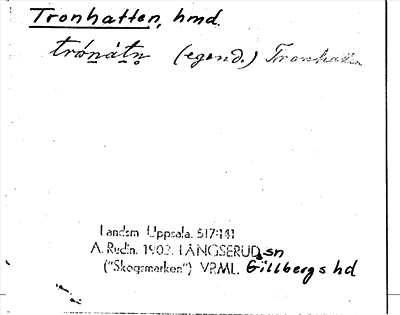 Tronhatten, hmd.
trónátn (egend.) Tronhatten
Landsm Uppsala. 517:141
A. Rudin. 1902. LÅNGSERUDsn
("Skogsmarken") VRML. Gillbergs hd